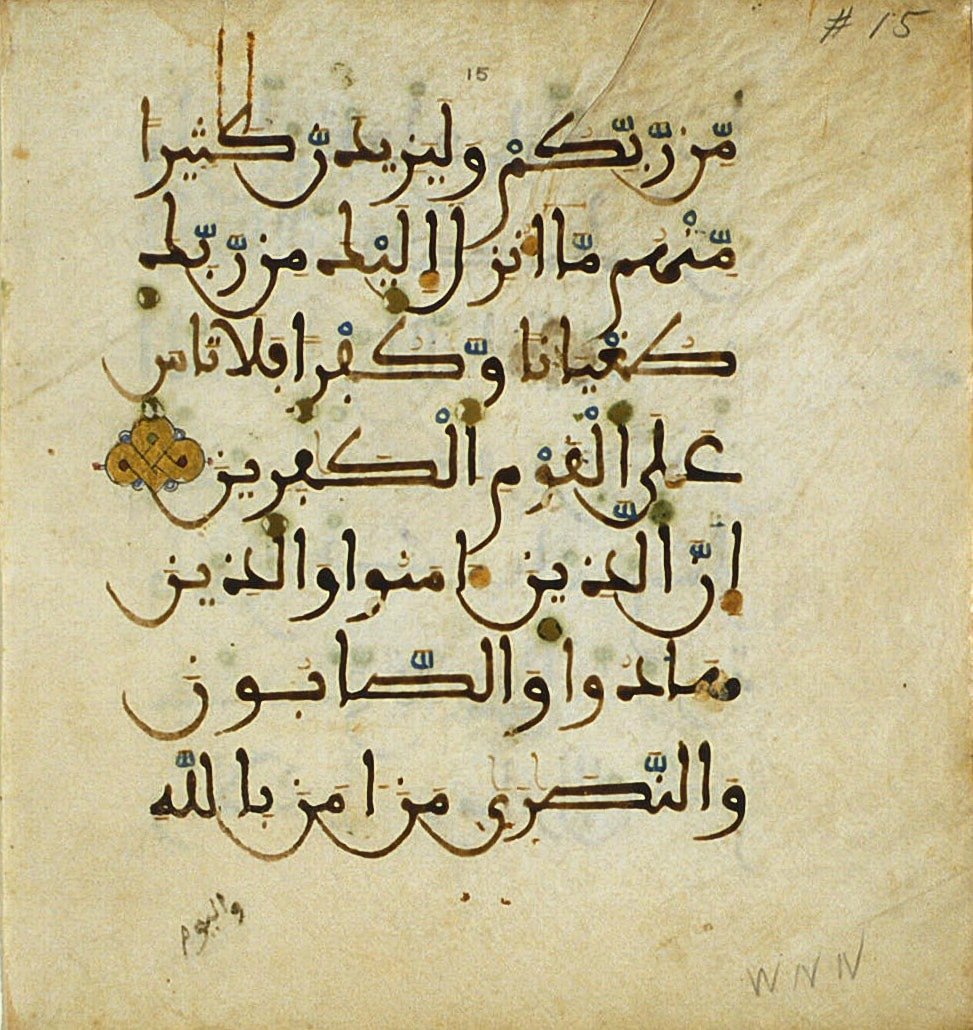 # 15
15
مِّن رَّبِّكُمْ وَلَيَزِيدَنَّ كَثِيرًا
مِّنْهُم مَّا أُنزِلَ إِلَيْكَ مِن رَّبِّكَ
طُغْيَٰنًا وَّكُفْرًا فَلَا تَأْسَ
عَلَى الْقَوْمِ الْكَٰفِرِينَ
إِنَّ الَّذِينَ ءَامَنُوا وَالَّذِينَ
هَادُوا وَالصَّابُونَ
وَالنَّصَٰرَىٰ مَنْ ءَامَنَ بِاللَّهِ
واليوم